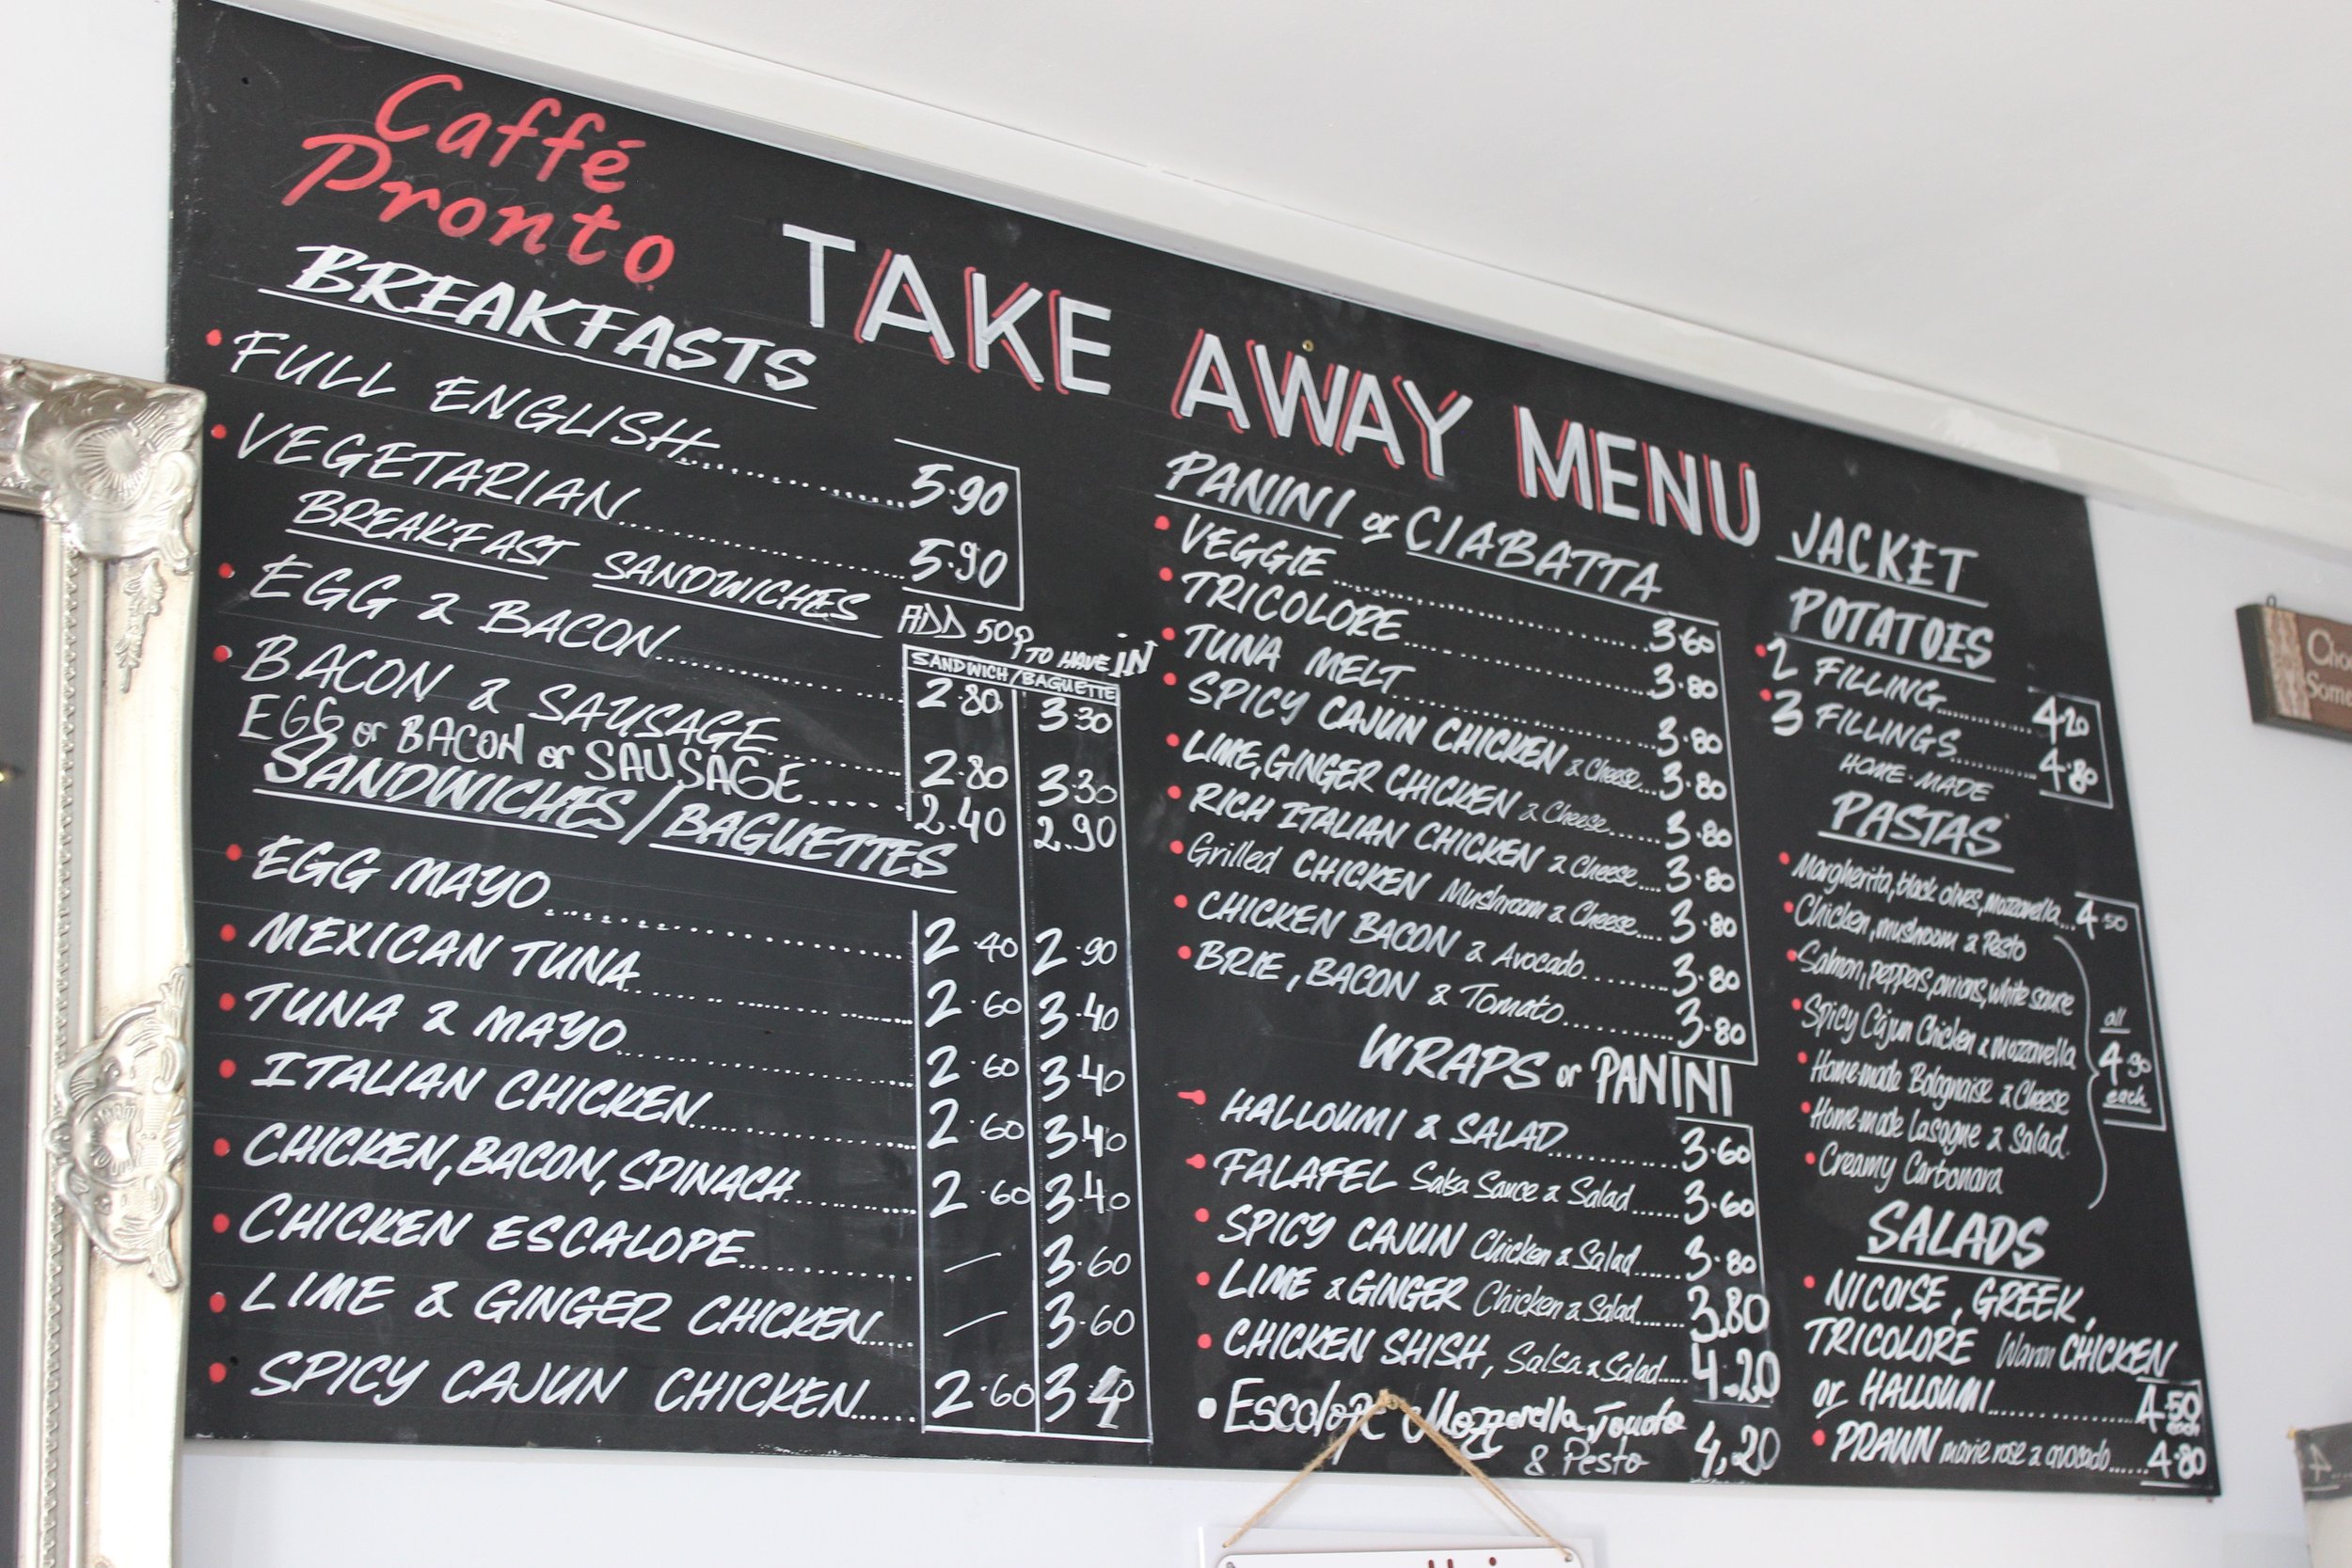 Caffé
Pronto
TAKE AWAY MENU
BREAKFASTS
FULL ENGLISH 5.90
VEGETARIAN 5.90
BREAKFAST SANDWICHES
ADD 50p TO HAVE IN
SANDWICH/BAGUETTE
EGG & BACON 2.80 3.30
BACON & SAUSAGE 2.80 3.30
EGG or BACON or SAUSAGE 2.40 2.90
SANDWICHES/BAGUETTES
EGG MAYO 2.40 2.90
MEXICAN TUNA 2.60 3.40
TUNA & MAYO 2.60 3.40
ITALIAN CHICKEN 2.60 3.40
CHICKEN, BACON, SPINACH 2.60 3.40
CHICKEN ESCALOPE — 3.60
LIME & GINGER CHICKEN — 3.60
SPICY CAJUN CHICKEN 2.60 3.40
PANINI or CIABATTA
VEGGIE 3.60
TRICOLORE 3.80
TUNA MELT 3.80
SPICY CAJUN CHICKEN & Cheese 3.80
LIME, GINGER CHICKEN & Cheese 3.80
RICH ITALIAN CHICKEN & Cheese 3.80
Grilled CHICKEN Mushroom & Cheese 3.80
CHICKEN BACON & Avocado 3.80
BRIE, BACON & Tomato 3.80
WRAPS or PANINI
HALLOUMI & SALAD 3.60
FALAFEL Salsa Sauce & Salad 3.60
SPICY CAJUN Chicken & Salad 3.80
LIME & GINGER Chicken & Salad 3.80
CHICKEN SHISH, Salsa & Salad 4.20
Escalope Mozzarella, Tomato
& Pesto 4.20
JACKET
POTATOES
2 FILLING 4.20
3 FILLINGS 4.80
HOME-MADE
PASTAS
Margherita, black olives, mozzarella 4.50
Chicken, mushroom & Pesto
Salmon, peppers, onions, white sauce
Spicy Cajun Chicken & mozzarella
Home-made Bolognaise & Cheese
Home-made Lasagne & Salad.
Creamy Carbonara
all
4.90
each
SALADS
NICOISE, GREEK,
TRICOLORE Warm CHICKEN
or HALLOUMI 4.50
each
PRAWN marie rose & avocado 4.80